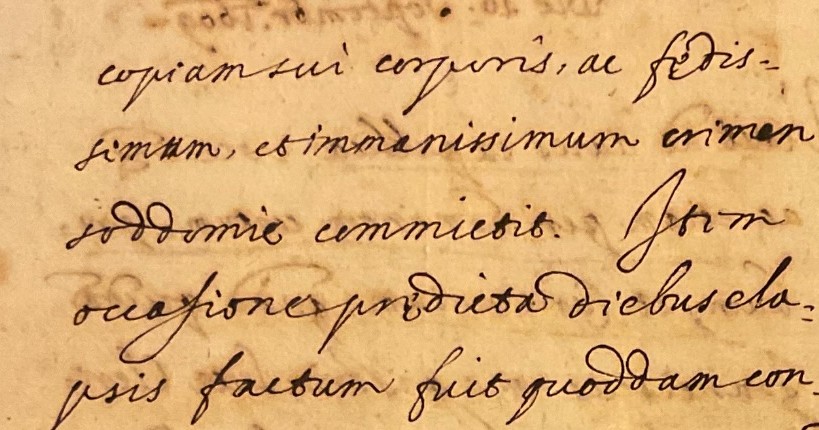 copiam sui corporis, ac fędis-
simum, et immanissimum crimen
soddomię commictit. Item
occasione prędicta diebus ela-
psis factum fuit quoddam con-